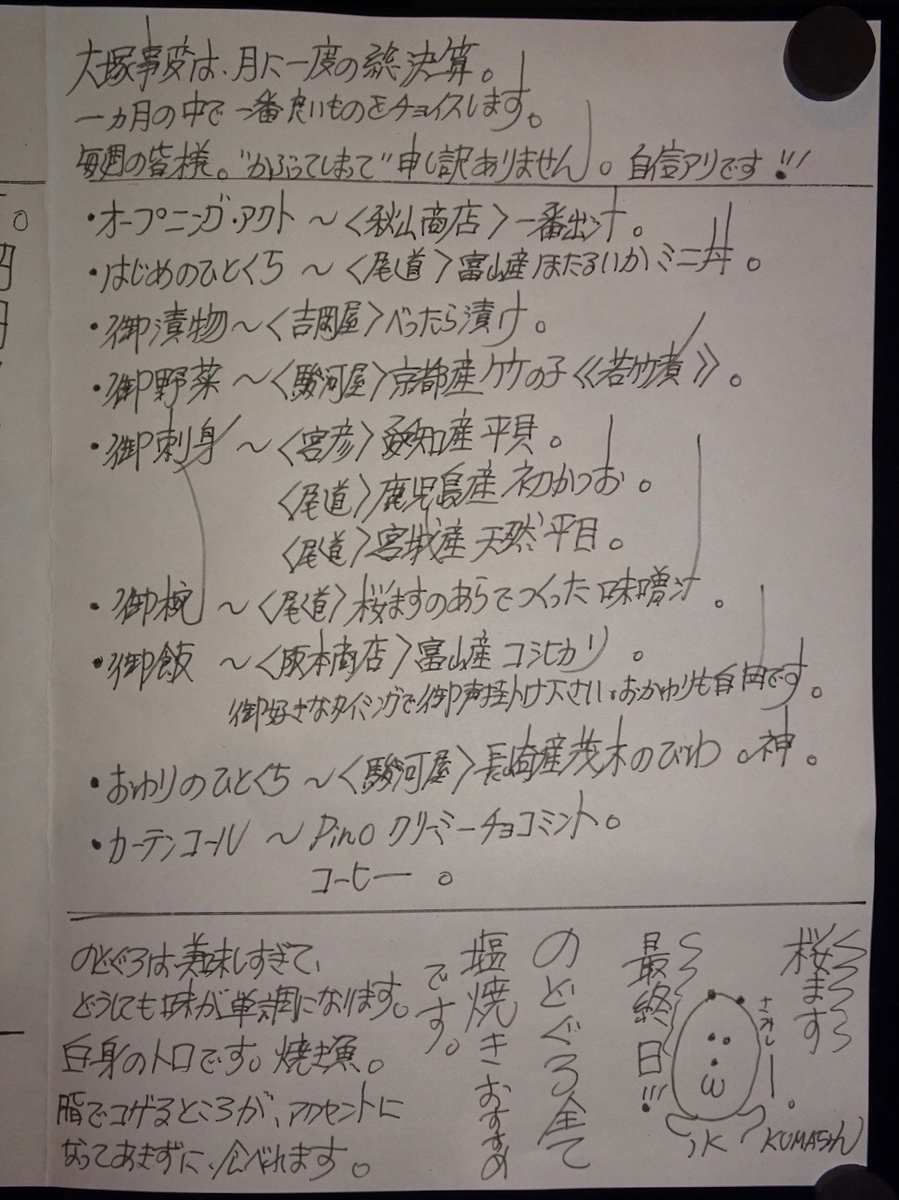 大塚事変は、月に一度の総決算。
一カ月の中で一番良いものをチョイスします。
毎週の皆様。"かぶってしまって"申し訳ありません。自信アリです!!!
・オープニング・アクト～〈秋山商店〉一番出汁。
・はじめのひとくち～〈尾道〉富山産ほたるいかミニ丼。
・御漬物～〈吉岡屋〉べったら漬け。
・御野菜～〈駿河屋〉京都産竹の子《若竹煮》。
・御刺身～〈宮彦〉愛知産平貝。
〈尾道〉鹿児島産初かつお。
〈尾道〉宮城産天然平目。
・御椀～〈尾道〉桜ますのあらでつくった味噌汁。
・御飯～〈阪本商店〉富山産コシヒカリ。
御好きなタイミングで御声掛け下さい。おかわりも自由です。
・おわりのひとくち～〈駿河屋〉長崎産茂木のびわ。神。
・カーテンコール～Pinoクリーミーチョコミント。
コーヒー。
のどぐろは美味しすぎて、
どうしても味が単調になります。
白身のトロです。焼き魚。
脂でコゲるところが、アクセントに
なってあきずに、食べれます。
桜ます
最終日!!!
のどぐろ全て
塩焼きおすすめ
です。